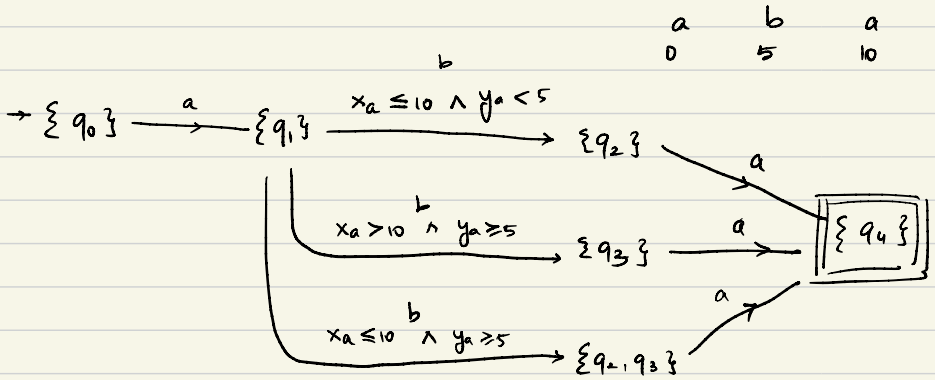 a b a
0 5 10
b
→ {q₀} a {q₁} xₐ ≤ 10 ∧ yₐ < 5 {q₂}
a
b
xₐ > 10 ∧ yₐ ≥ 5 {q₃} a {q₄}
a
b
xₐ ≤ 10 ∧ yₐ ≥ 5 {q₂, q₃}